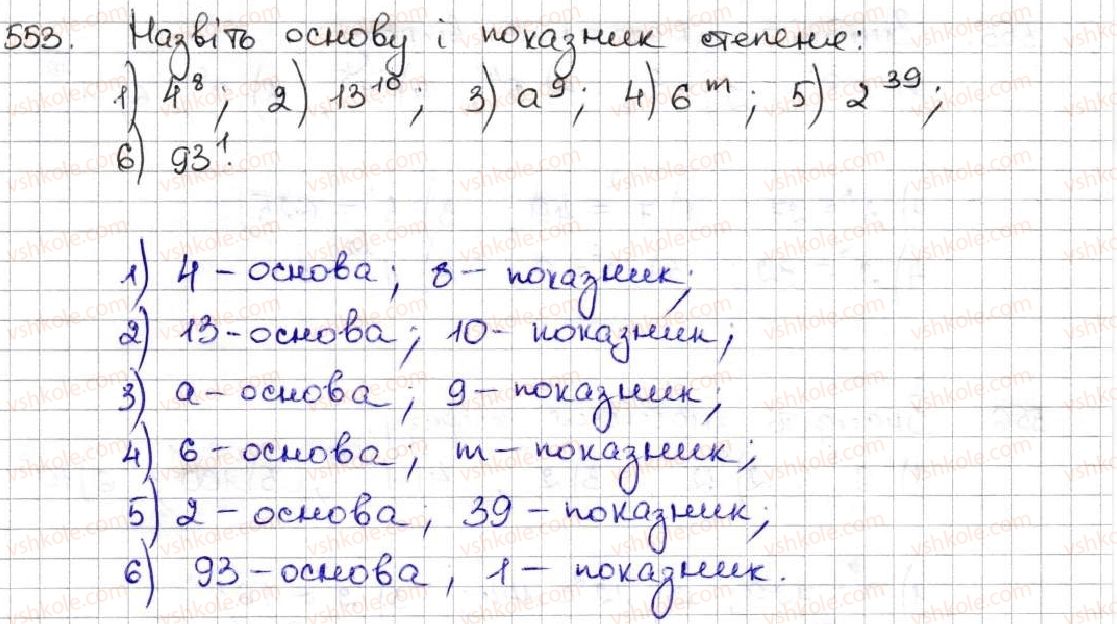 553. Назвіть основу і показник степеня:
1) 4⁸; 2) 13¹⁰; 3) a⁹; 4) 6ᵐ; 5) 2³⁹;
6) 93¹.
1) 4 – основа; 8 – показник;
2) 13 – основа; 10 – показник;
3) a – основа; 9 – показник;
4) 6 – основа; m – показник;
5) 2 – основа, 39 – показник;
6) 93 – основа, 1 – показник.